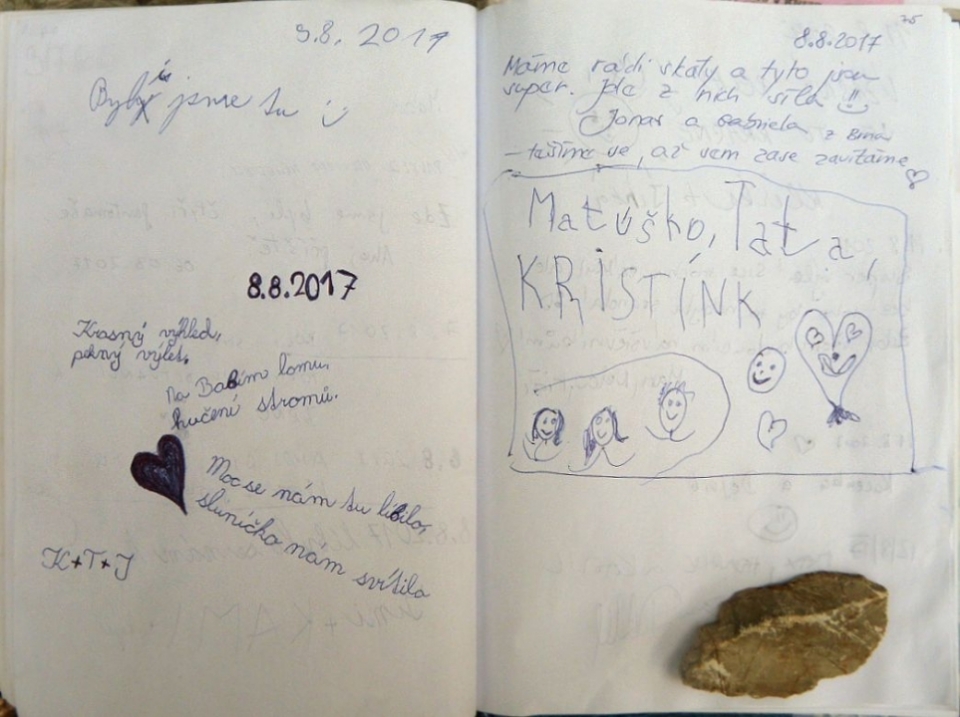 9.8. 2017
Byly jsme tu
8.8.2017
Krasný výhled,
pěkný výlet,
na Babím lomu,
hučení stromů.
Moc se nám tu líbilo,
sluníčko nám svítilo
K+T+J
75
8.8.2017
Máme rádi skály a tyto jsou
super. Jde z nich síla !!
Jonar a Gabriela z Brna
– těšíme se, až sem zase zavítáme
Matúško, Tať a,
KRİSTÍNK